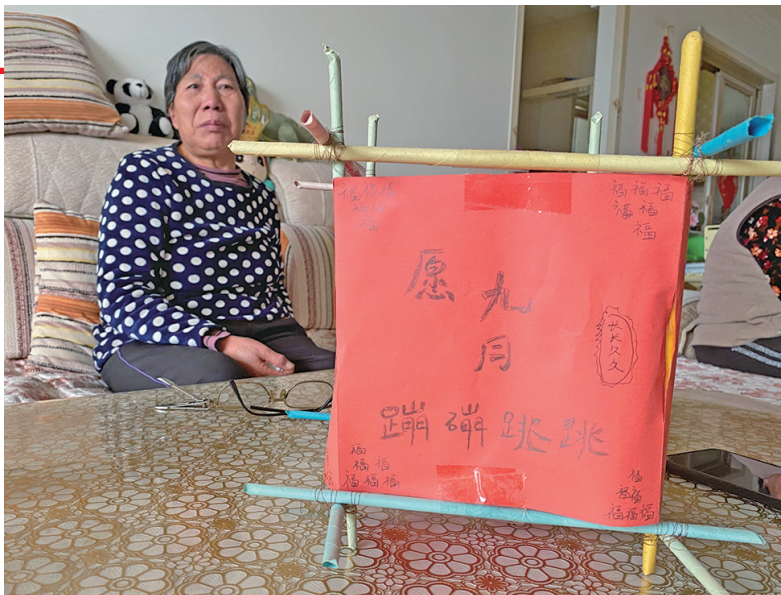 福福福
福福
福
福福福
福福
福
愿九月
长长久久
蹦蹦跳跳
福
福福
福福福
福
福福
福福福